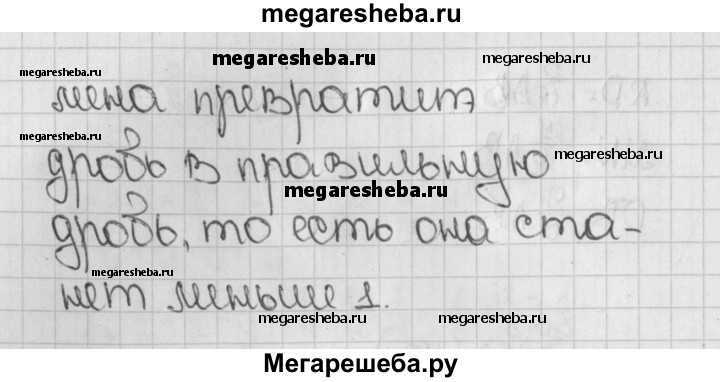 megaresheba.ru
megaresheba.ru
megaresheba.ru
megaresheba.ru
мена превратит
megaresheba.ru
дробь в правильную
megaresheba.ru
megaresheba.ru
дробь, то есть она ста-
megaresheba.ru
нет меньше 1.
megaresheba.ru
megaresheba.ru
Мегарешеба.ру